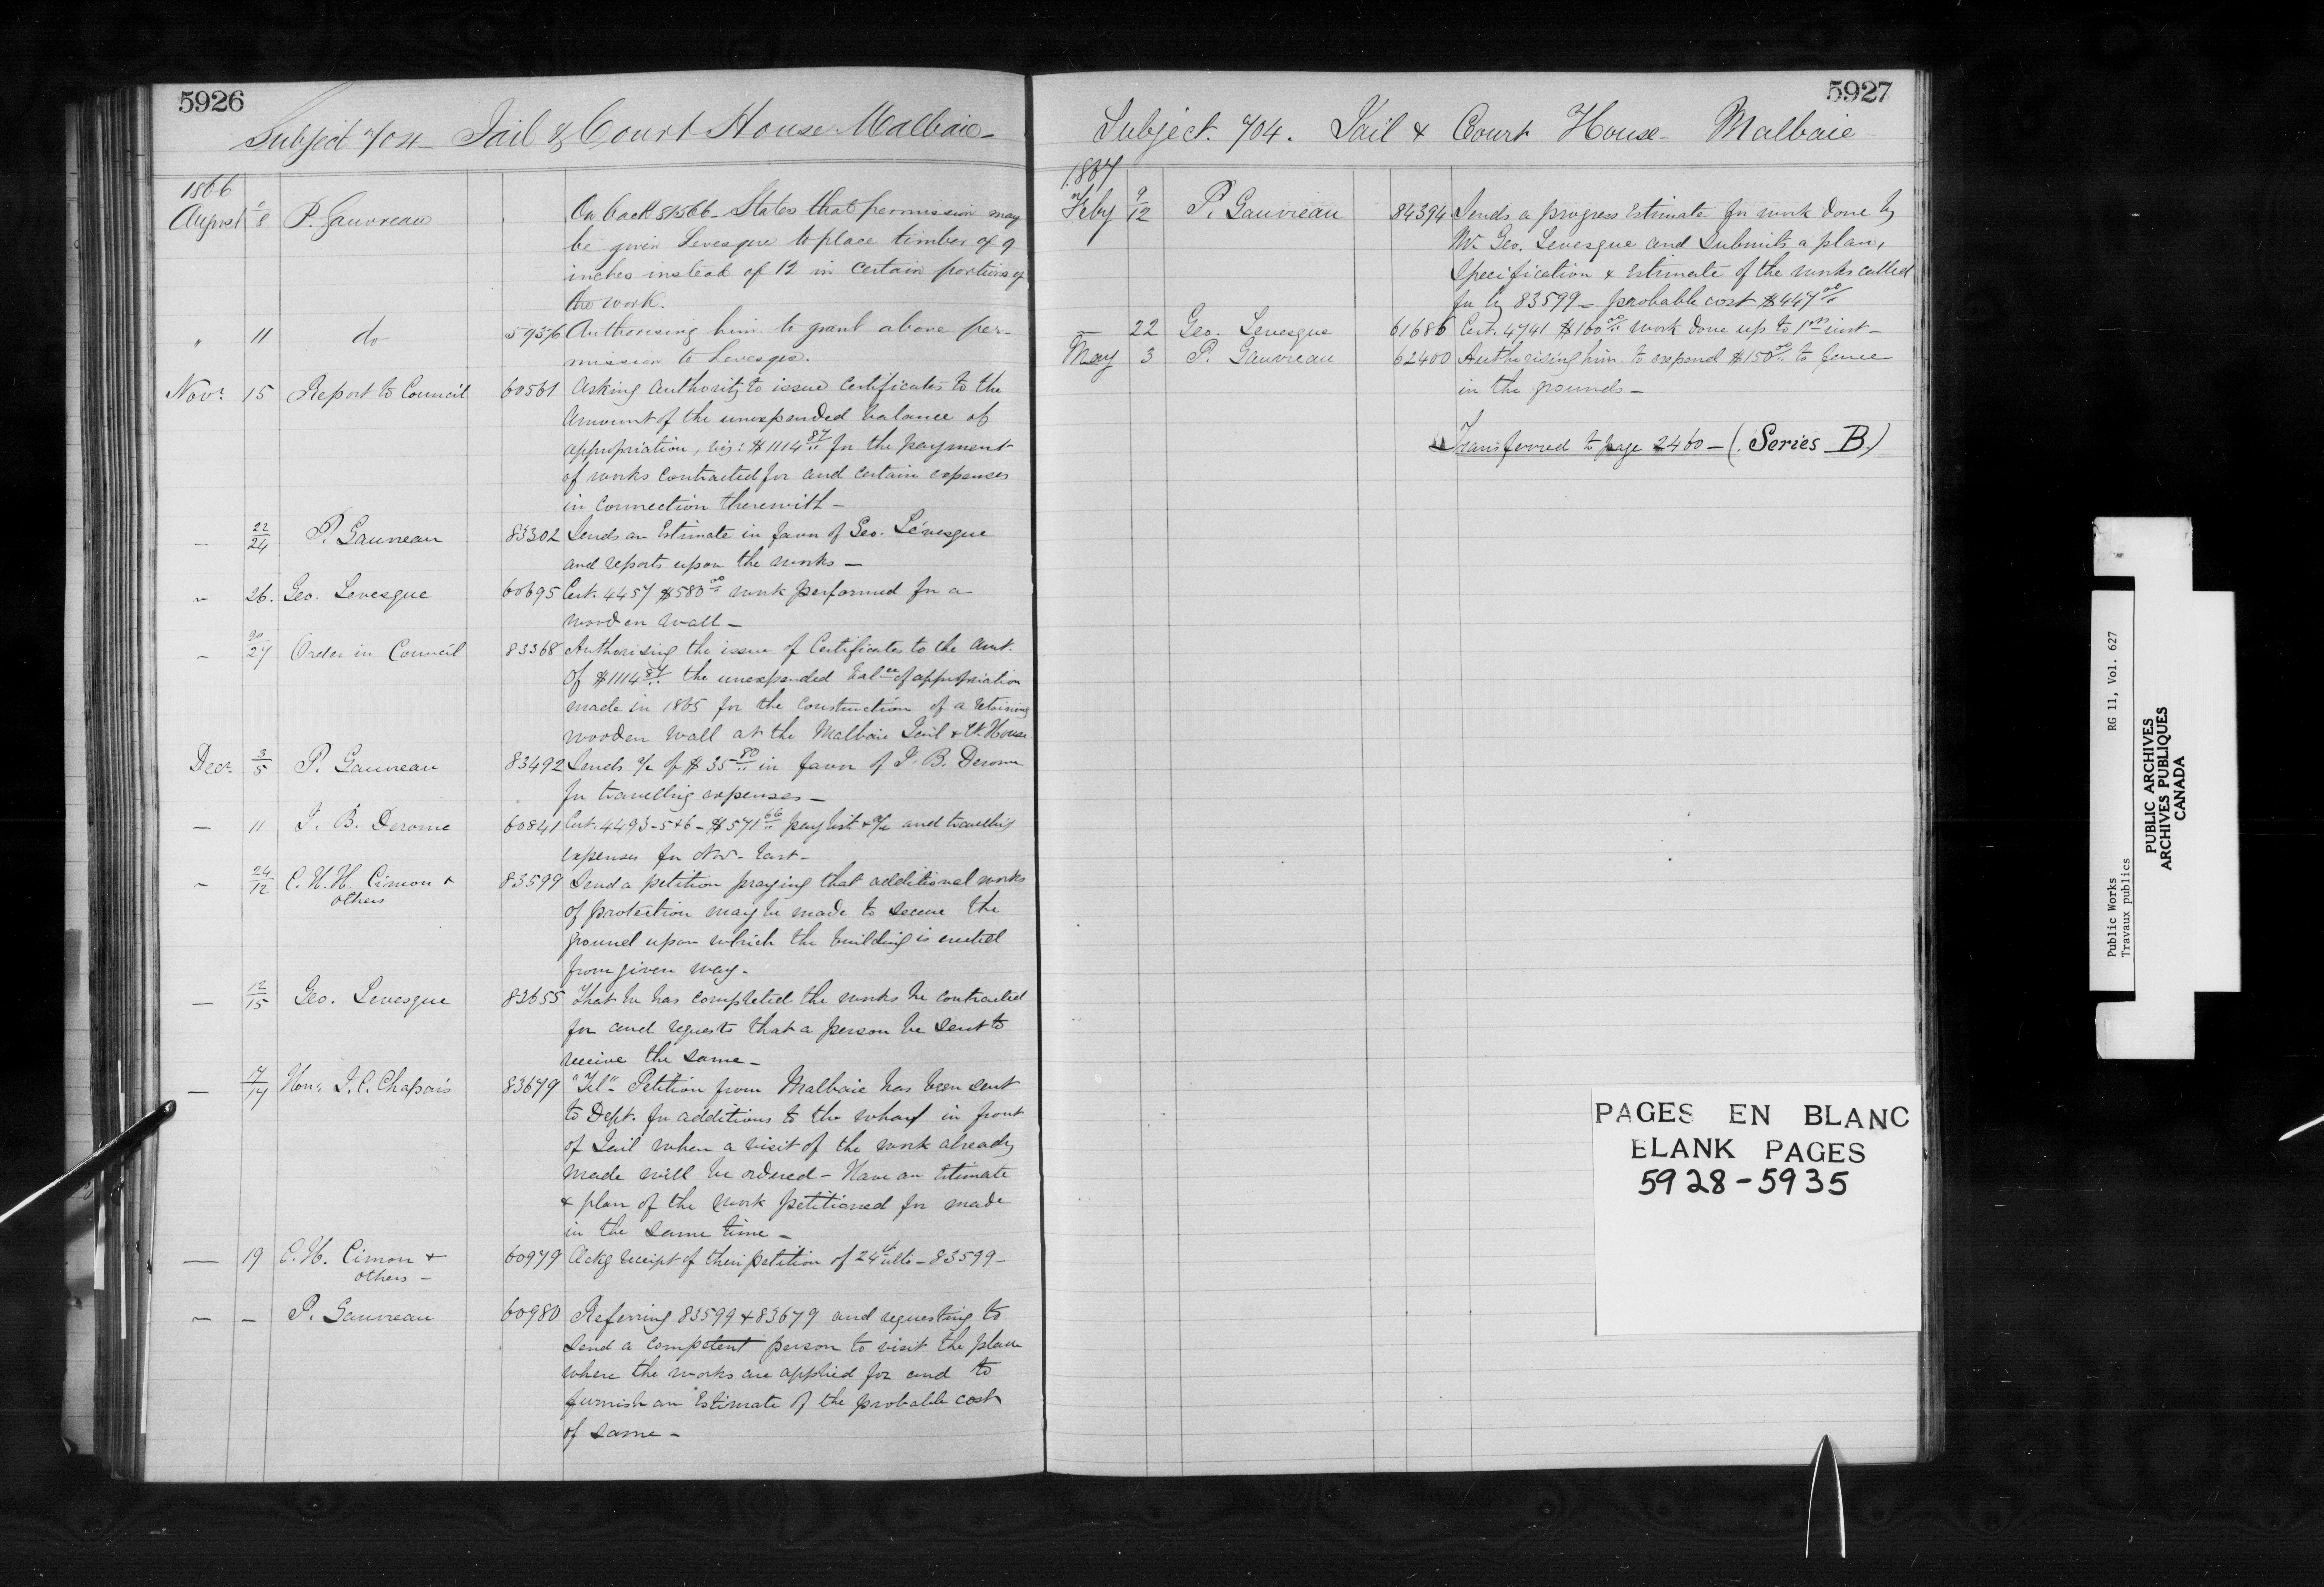 5926
Subject 704 - Jail & Court House Malbaie -
1866
August 8 P. Gauvreau On back 81566 - States that permission may
be given Levesque to place timber of 9
inches instead of 12 in certain portions of
the work.
" 11 do 59376 Authorising him to grant above per-
mission to Levesque.
Novr. 15 Report to Council 60561 Asking authority to issue Certificates to the
amount of the unexpended balance of
appropriation, viz: $1114 87 for the payment
of works contracted for and certain expenses
in connection therewith -
- 22/24 P. Gauvreau 83302 Sends an Estimate in favor of Geo. Lévesque
and reports upon the works -
- 26. Geo. Levesque 60695 Cert. 4457 $580 00 work performed for a
wooden wall -
- 27 Order in Council 83368 Authorising the issue of Certificates to the amt.
of $1114 87 the unexpended balce of appropriation
made in 1865 for the construction of a retaining
wooden wall at the Malbaie Jail & Ct. House
Decr. 3/5 P. Gauvreau 83492 Sends a/c of $35 80 in favor of J. B. Derome
for travelling expenses -
- 11 J. B. Derome 60841 Cert. 4493-5&6 - $571 66 pay list & a/c and travelling
expenses for Nov. last -
- 24/12 C. H. H. Cimon & 83599 Send a petition praying that additional works
others
of protection may be made to secure the
ground upon which the building is erected
from given way -
- 12/15 Geo. Levesque 83655 That he has completed the works he contracted
for and requests that a person be sent to
receive the same -
- 17/17 Hon. J. C. Chapais 83679 "Tel" - Petition from Malbaie has been sent
to Dept. for additions to the wharf in front
of Jail when a visit of the work already
made will be ordered - Have an Estimate
& plan of the work petitioned for made
in the same time -
- 19 C. H. Cimon & 60979 Ackg receipt of their petition of 24th ulto - 83599 -
others -
- - P. Gauvreau 60980 Referring 83599 & 83679 and requesting to
send a competent person to visit the place
where the works are applied for and to
furnish an Estimate of the probable cost
of same -
5927
Subject. 704. Jail & Court House - Malbaie
1867
Feby 9/12 P. Gauvreau 84394 Sends a progress Estimate for work done by
Mr. Geo. Levesque and submits a plan,
Specification & Estimate of the works called
for by 83599 - probable cost $447 00
- 22 Geo. Levesque 61686 Cert. 4741 $100 00 work done up to 1st inst -
May 3 P. Gauvreau 62400 Authorising him to expend $150 00 to fence
in the grounds -
Transferred to page 2460 - (Series B.)
PAGES EN BLANC
BLANK PAGES
5928-5935
Public Works RG 11, Vol. 627
Travaux publics
PUBLIC ARCHIVES
ARCHIVES PUBLIQUES
CANADA